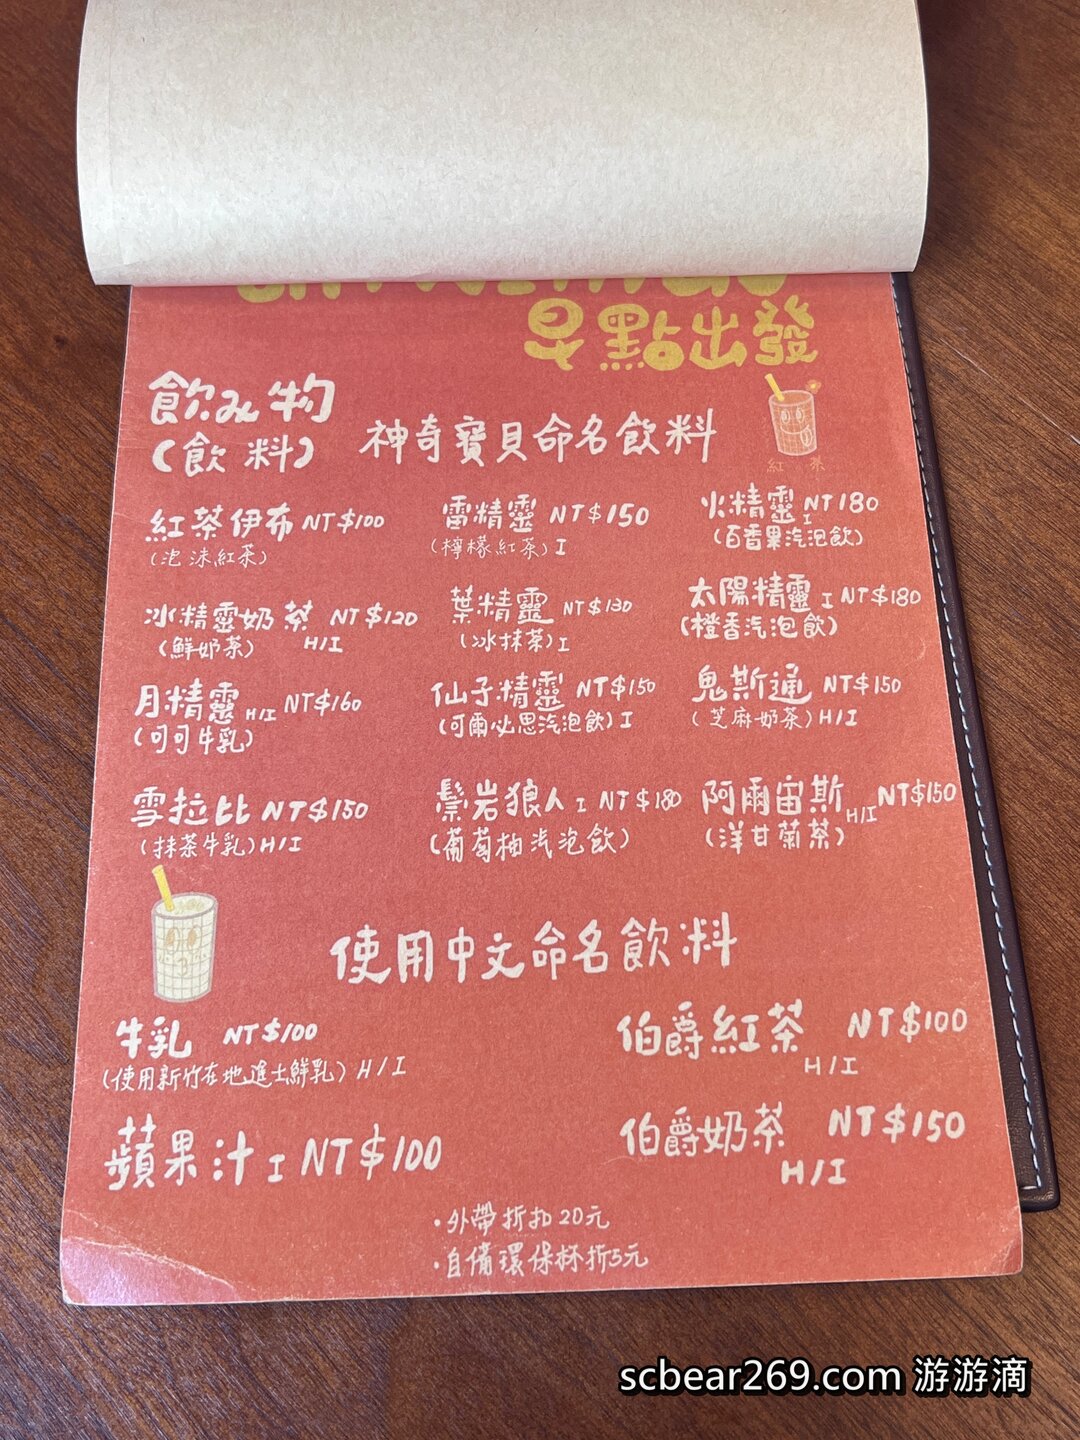 早點出發
飲み物
(飲料)
神奇寶貝命名飲料
紅 茶
紅茶伊布 NT$100
(泡沫紅茶)
雷精靈 NT$150
(檸檬紅茶) I
火精靈 I NT180
(百香果汽泡飲)
冰精靈奶茶 NT$120
(鮮奶茶) H/I
葉精靈 NT$130
(冰抹茶) I
太陽精靈 I NT$180
(橙香汽泡飲)
月精靈 H/I NT$160
(可可牛乳)
仙子精靈 NT$150
(可爾必思汽泡飲) I
鬼斯通 NT$150
(芝麻奶茶) H/I
雪拉比 NT$150
(抹茶牛乳) H/I
鬃岩狼人 I NT$180
(葡萄柚汽泡飲)
阿爾宙斯 H/I NT$150
(洋甘菊茶)
使用中文命名飲料
牛乳 NT$100
(使用新竹在地進士鮮乳) H/I
伯爵紅茶 NT$100
H/I
蘋果汁 I NT$100
伯爵奶茶 NT$150
H/I
·外帶折扣20元
·自備環保杯折5元
scbear269.com 游游滴